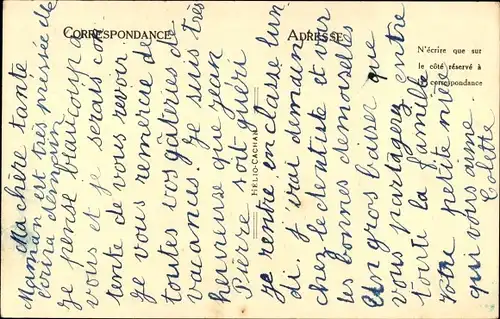 CORRESPONDANCE
ADRESSE
N'écrire que sur
le côté réservé à
la correspondance
HELIO-CACHAN
Ma chère tante
Maman est très pressée elle
écrira demain.
Je pense beaucoup a
vous et je serais con
tente de vous revoir
Je vous remercie de
toutes vos gâteries de
vacances. Je suis très
heureuse que Jean
Pierre soit guéri
Je rentre en classe lun
di. J'irai demain
chez le dentiste et voir
les bonnes demoiselles
Un gros baiser que
vous partagerz entre
toute la famille
votre petite nièce
qui vous aime
Colette